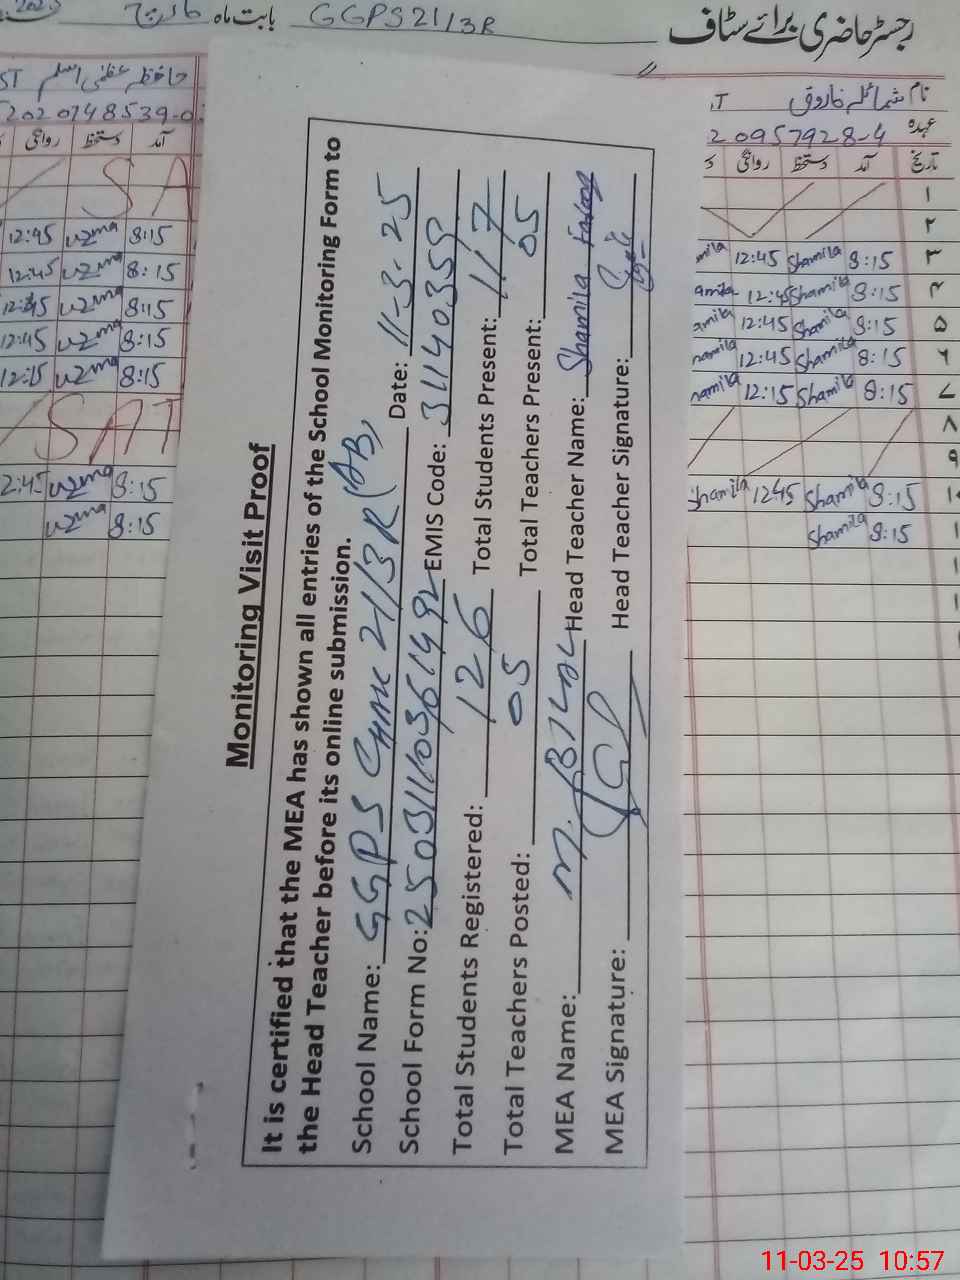 رجسٹر حاضری برائے سٹاف
بابت ماہ مارچ GGPS 21/3R
نام شمائلہ فاروق
عہدہ 20957928-4
تاریخ آمد دستخط روانگی
۱
۲
۳ 8:15 Shamila 12:45
۴ 8:15 Shamila 12:45
۵ 8:15 Shamila 12:45
۶ 8:15 Shamila 12:45
۷ 8:15 Shamila 12:15
۸
۹
8:15 Shamila 1245 Shamila
8:15 Shamila
حافظہ عظمٰی اسلم ST
2020748539-0
آمد دستخط روانگی
SA
8:15 uzma 12:45
8:15 uzma 12:45
8:15 uzma 12:45
8:15 uzma 12:45
8:15 uzma 12:15
SAT
8:15 uzma 2:45
8:15 uzma
Monitoring Visit Proof
It is certified that the MEA has shown all entries of the School Monitoring Form to
the Head Teacher before its online submission.
School Name: GGPS CHAK 21/3R (AB) Date: 11-3-25
School Form No: 25031110361492 EMIS Code: 31140355
Total Students Registered: 126 Total Students Present: 117
Total Teachers Posted: 05 Total Teachers Present: 05
MEA Name: M. BILAL Head Teacher Name: Shamila Farooq
MEA Signature: Head Teacher Signature:
11-03-25 10:57